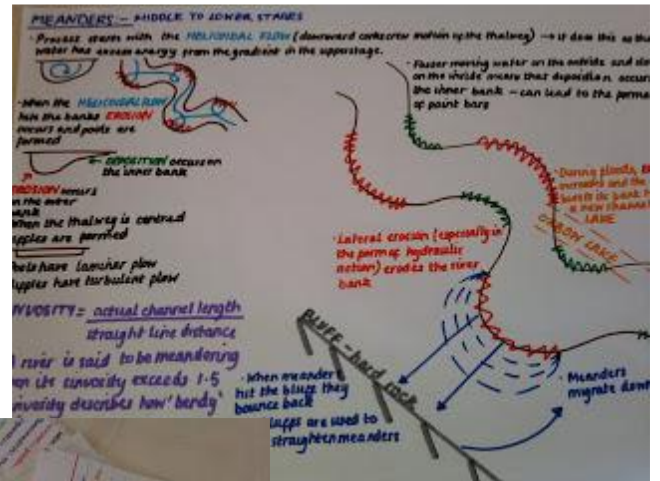 MEANDERS:- MIDDLE TO LOWER STAGES
· Process starts with the HELICOIDAL FLOW (downward corkscrew motion of the thalweg) → it does this as the
water has excess energy from the gradient in the upperstage.
· When the HELICOIDAL FLOW
hits the banks EROSION
occurs and pools are
formed
DEPOSITION occurs on
the inner bank
EROSION occurs
on the outer
bank
When the thalweg is centred
riffles are formed
have laminar flow
riffles have turbulent flow
SINUOSITY = actual channel length
straight line distance
A river is said to be meandering
when its sinuosity exceeds 1.5
sinuosity describes how 'bendy'
· Faster moving water on the outside and
on the inside means that deposition occurs
the inner bank - can lead to the
of point bars
· During floods,
increases and the
bursts its bank
a new channel
LAKE
OXBOW LAKE
· Lateral erosion (especially in
the form of hydraulic
action) erodes the river
bank
BLUFF - hard rock
· When meanders
hit the bluff they
bounce back
bluffs are used to
straighten meanders
· Meanders
migrate